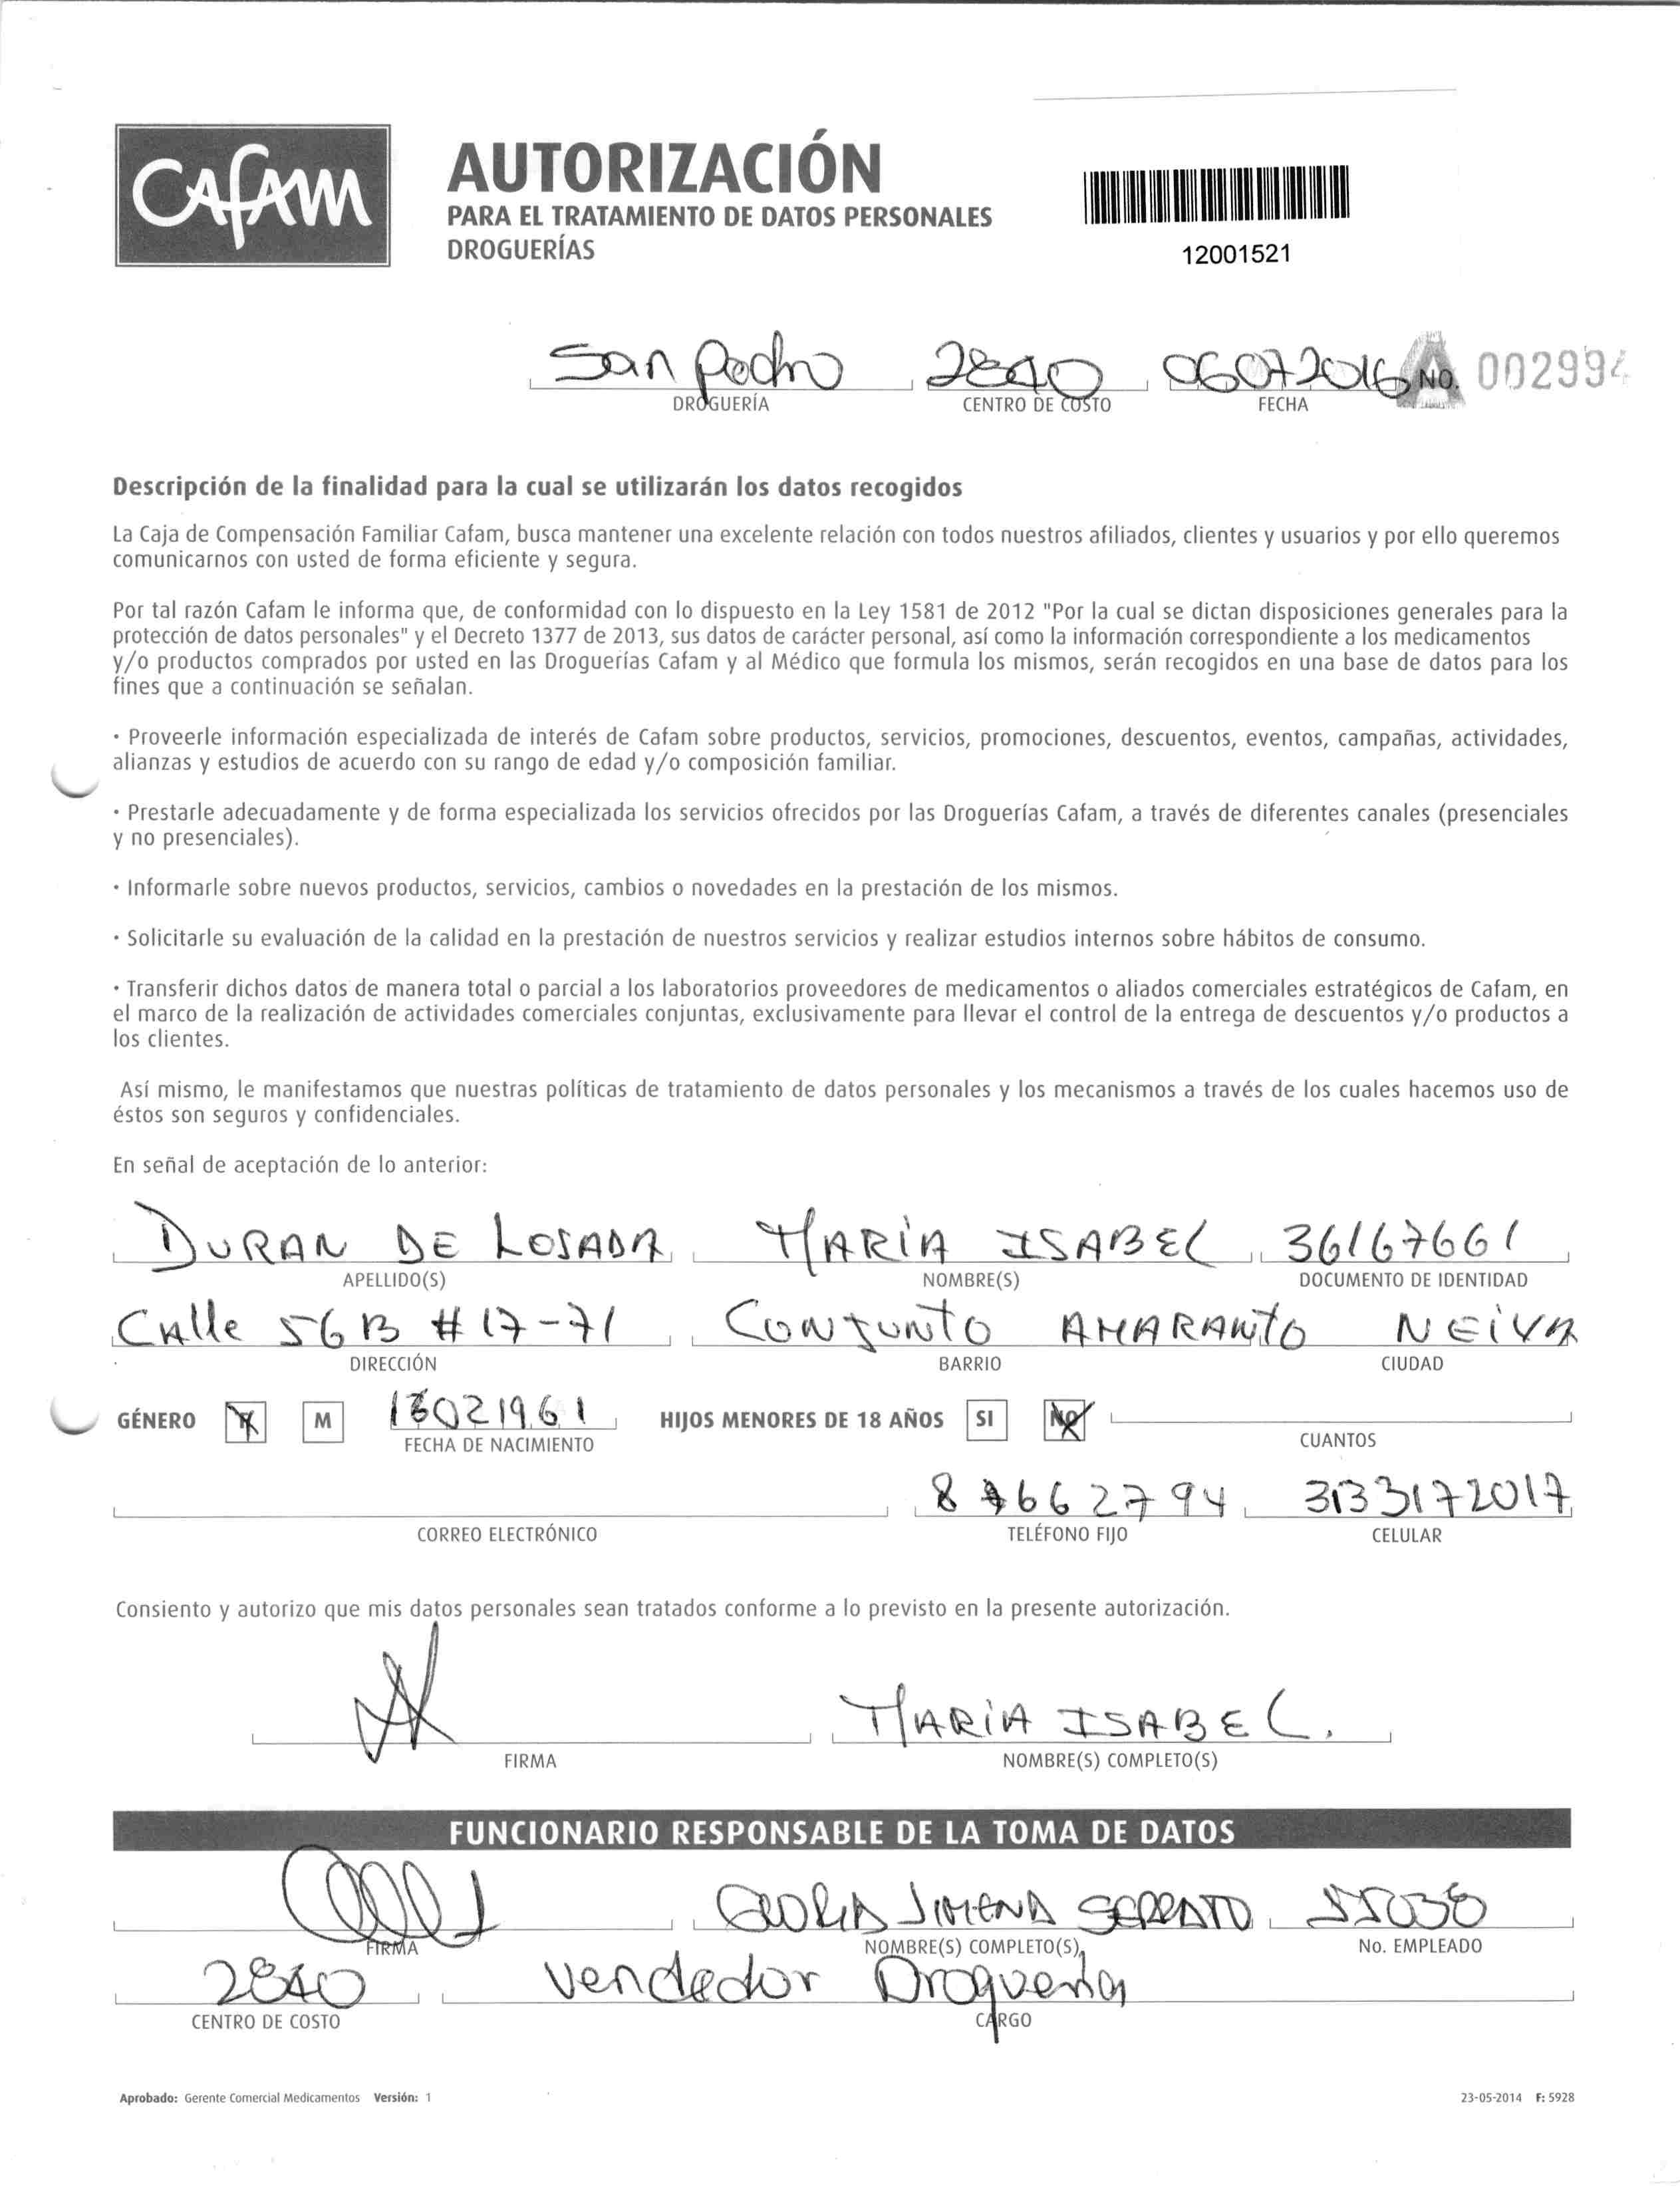 CAFAM
AUTORIZACIÓN
PARA EL TRATAMIENTO DE DATOS PERSONALES
DROGUERÍAS
12001521
San Pedro 2840 06072016 A NO. 002994
DROGUERÍA CENTRO DE COSTO FECHA
Descripción de la finalidad para la cual se utilizarán los datos recogidos
La Caja de Compensación Familiar Cafam, busca mantener una excelente relación con todos nuestros afiliados, clientes y usuarios y por ello queremos
comunicarnos con usted de forma eficiente y segura.
Por tal razón Cafam le informa que, de conformidad con lo dispuesto en la Ley 1581 de 2012 "Por la cual se dictan disposiciones generales para la
protección de datos personales" y el Decreto 1377 de 2013, sus datos de carácter personal, así como la información correspondiente a los medicamentos
y/o productos comprados por usted en las Droguerías Cafam y al Médico que formula los mismos, serán recogidos en una base de datos para los
fines que a continuación se señalan.
· Proveerle información especializada de interés de Cafam sobre productos, servicios, promociones, descuentos, eventos, campañas, actividades,
alianzas y estudios de acuerdo con su rango de edad y/o composición familiar.
· Prestarle adecuadamente y de forma especializada los servicios ofrecidos por las Droguerías Cafam, a través de diferentes canales (presenciales
y no presenciales).
· Informarle sobre nuevos productos, servicios, cambios o novedades en la prestación de los mismos.
· Solicitarle su evaluación de la calidad en la prestación de nuestros servicios y realizar estudios internos sobre hábitos de consumo.
· Transferir dichos datos de manera total o parcial a los laboratorios proveedores de medicamentos o aliados comerciales estratégicos de Cafam, en
el marco de la realización de actividades comerciales conjuntas, exclusivamente para llevar el control de la entrega de descuentos y/o productos a
los clientes.
Así mismo, le manifestamos que nuestras políticas de tratamiento de datos personales y los mecanismos a través de los cuales hacemos uso de
éstos son seguros y confidenciales.
En señal de aceptación de lo anterior:
DURAN DE LOSADA MARIA ISABEL 36167661
APELLIDO(S) NOMBRE(S) DOCUMENTO DE IDENTIDAD
Calle 56 B # 17-71 CONJUNTO AMARANTO NEIVA
DIRECCIÓN BARRIO CIUDAD
GÉNERO M HIJOS MENORES DE 18 AÑOS SI NO
FECHA DE NACIMIENTO CUANTOS
3133172017
CORREO ELECTRÓNICO TELÉFONO FIJO CELULAR
Consiento y autorizo que mis datos personales sean tratados conforme a lo previsto en la presente autorización.
MARIA ISABEL.
FIRMA NOMBRE(S) COMPLETO(S)
FUNCIONARIO RESPONSABLE DE LA TOMA DE DATOS
GLORIA JIMENA SERRATO 55038
FIRMA NOMBRE(S) COMPLETO(S) No. EMPLEADO
2840 Vendedor Drogueria
CENTRO DE COSTO CARGO
Aprobado: Gerente Comercial Medicamentos Versión: 1 23-05-2014 F: 5928